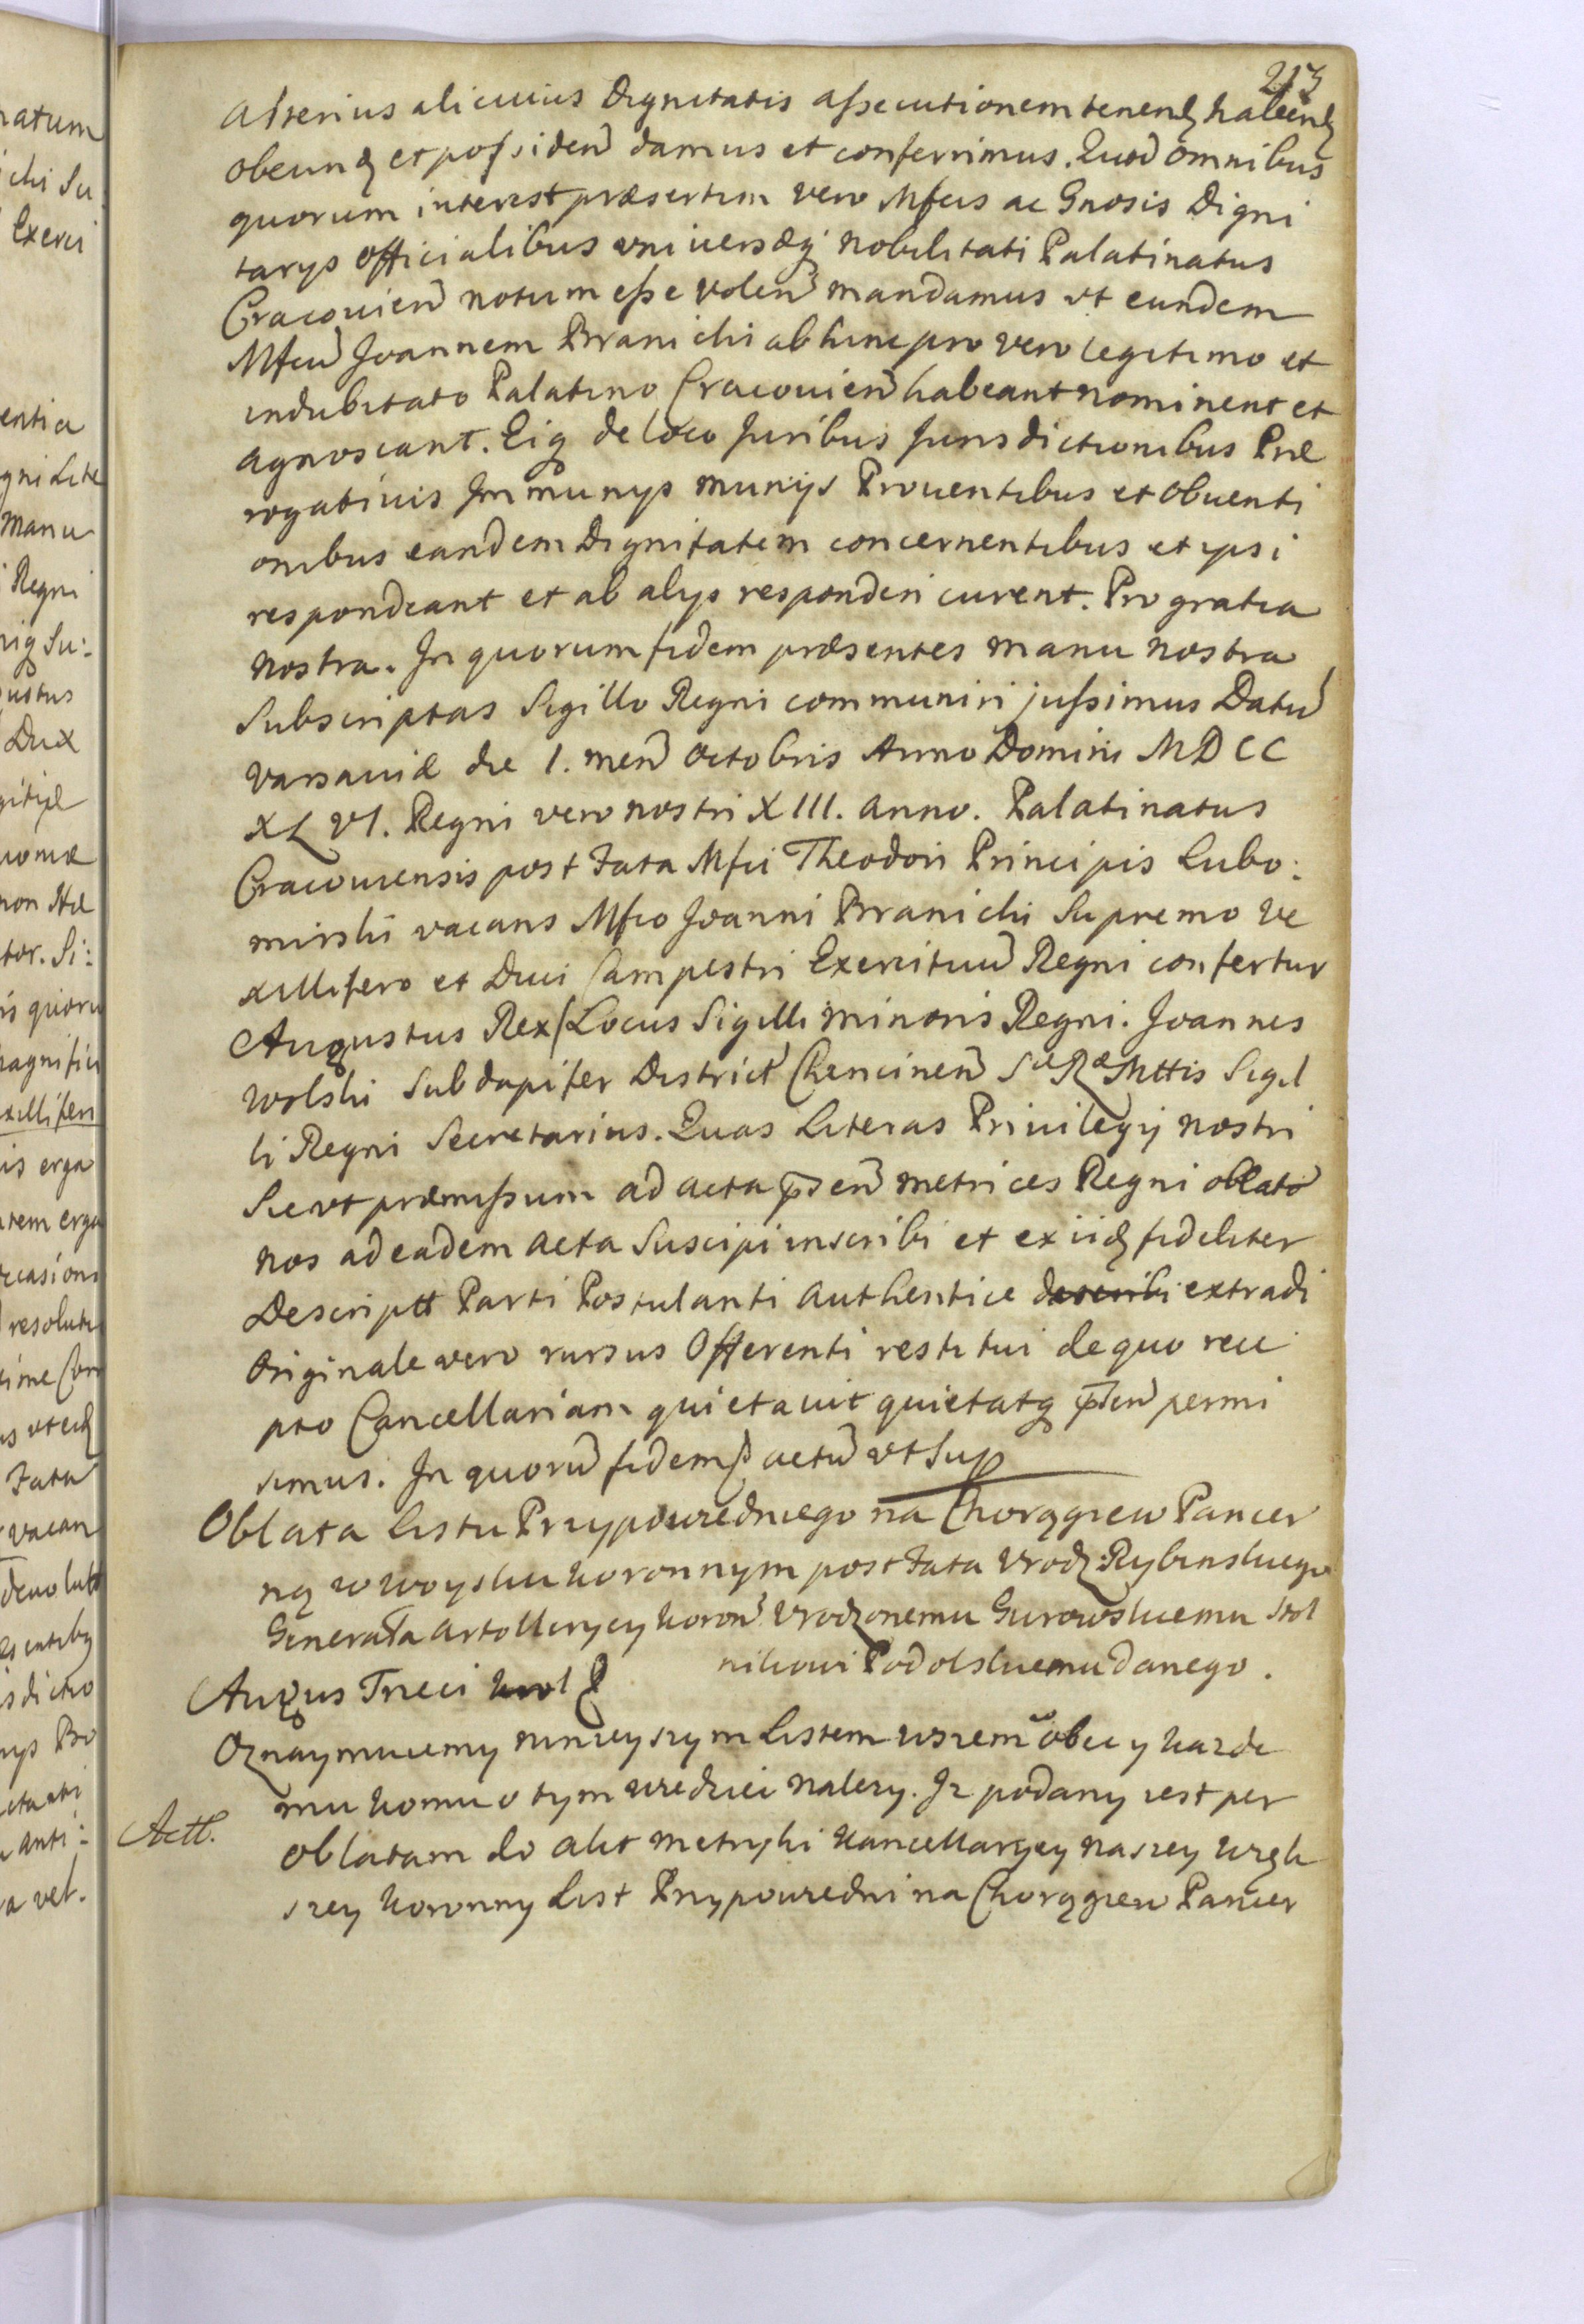 213
alterius alicuius Dignitatis assecutionem tenend habend
obeund et possidend damus et conferimus. Quod omnibus
quorum interest præsertim vero Mfcis ac Gnosis Digni
tarys officialibus universæq nobilitati Palatinatus
Cracovien notum esse volen mandamus vt eundem
Mfcu Joannem Branicki ab hinc pro vero legitimo et
indubitato Palatino Cracovien habeant nominent et
agnoscant. Eiq de loco Juribus Jurisdictionibus Præ
rogativis Immunys munijs Proventibus et obventi
onibus eandem Dignitatem concernentibus et ipsi
respondeant et ab alys responderi curent. Pro gratia
nostra. In quorum fidem præsentes manu nostra
Subscriptas Sigillo Regni communiri jussimus Datu
varsaviæ die 1. men octobris Anno Domini MDCC
XLVI. Regni vero nostri XIII. anno. Palatinatus
Cracoviensis post Fata Mfci Theodori Principis Lubo:
mirski vacans Mfco Joanni Branicki Supremo Ve
xillifero et Duci Campestri Exercituu Regni confertur
Augustus Rex Locus Sigilli minoris Regni. Joannes
Wolski Subdapifer District Chencinen Sæ Ræ Mttis Sigil
li Regni Secretarius. Quas Literas Privilegij nostri
Sic vt præmissum ad acta psen metrices Regni oblato
nos ad eadem acta Suscipi inscribi et ex iisd fideliter
Descriptt Parti Postulanti authentice describi extradi
Originale vero rursus Offerenti restitui de quo rece
pto Cancellariam quietavit quietatq psen permi
simus. In quoru fidem actu vt Sup
Oblata Listu Przypowiedniego na Chorągiew Pancer
ną w woysku koronnym post Fata Vrodz: Rybinskiego
Generała artolleryey koron Vrodzonemu Gurowskiemu Stol
nikowi Podolskiemu danego.
Augus Trzeci Krol
Oznaymuiemy ninieyszym Listem wszem obec y kazde
mu komu o tym wiedziec nalezy. Iz podany iest per
Actt.
oblatam do akt metryki kancellaryey naszey więk
szey koronny List Przypowiedni na Chorągiew Pancer